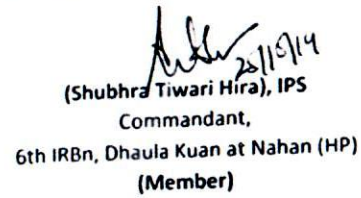 (Shubhra Tiwari Hira), IPS
Commandant,
6th IRBn, Dhaula Kuan at Nahan (HP)
(Member)